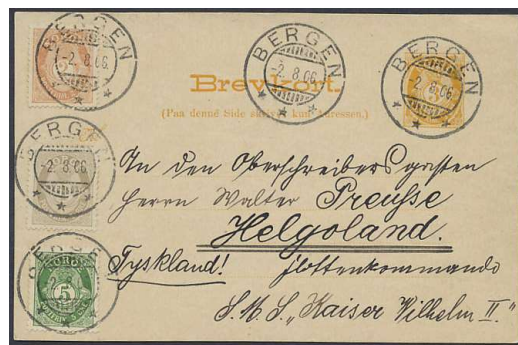 BERGEN
-2.8.06.
BERGEN
-2.8.06.
BERGEN
2.8.06
Brevkort.
(Paa denne Side skrives kun Adressen.)
BERGEN
-2.8.06
An den Oberschreibersgasten
Herrn Walter Preusse
Helgoland.
Tyskland! Flottenkommando
S.M.S. „Kaiser Wilhelm II."
BERGEN
NORGE
5